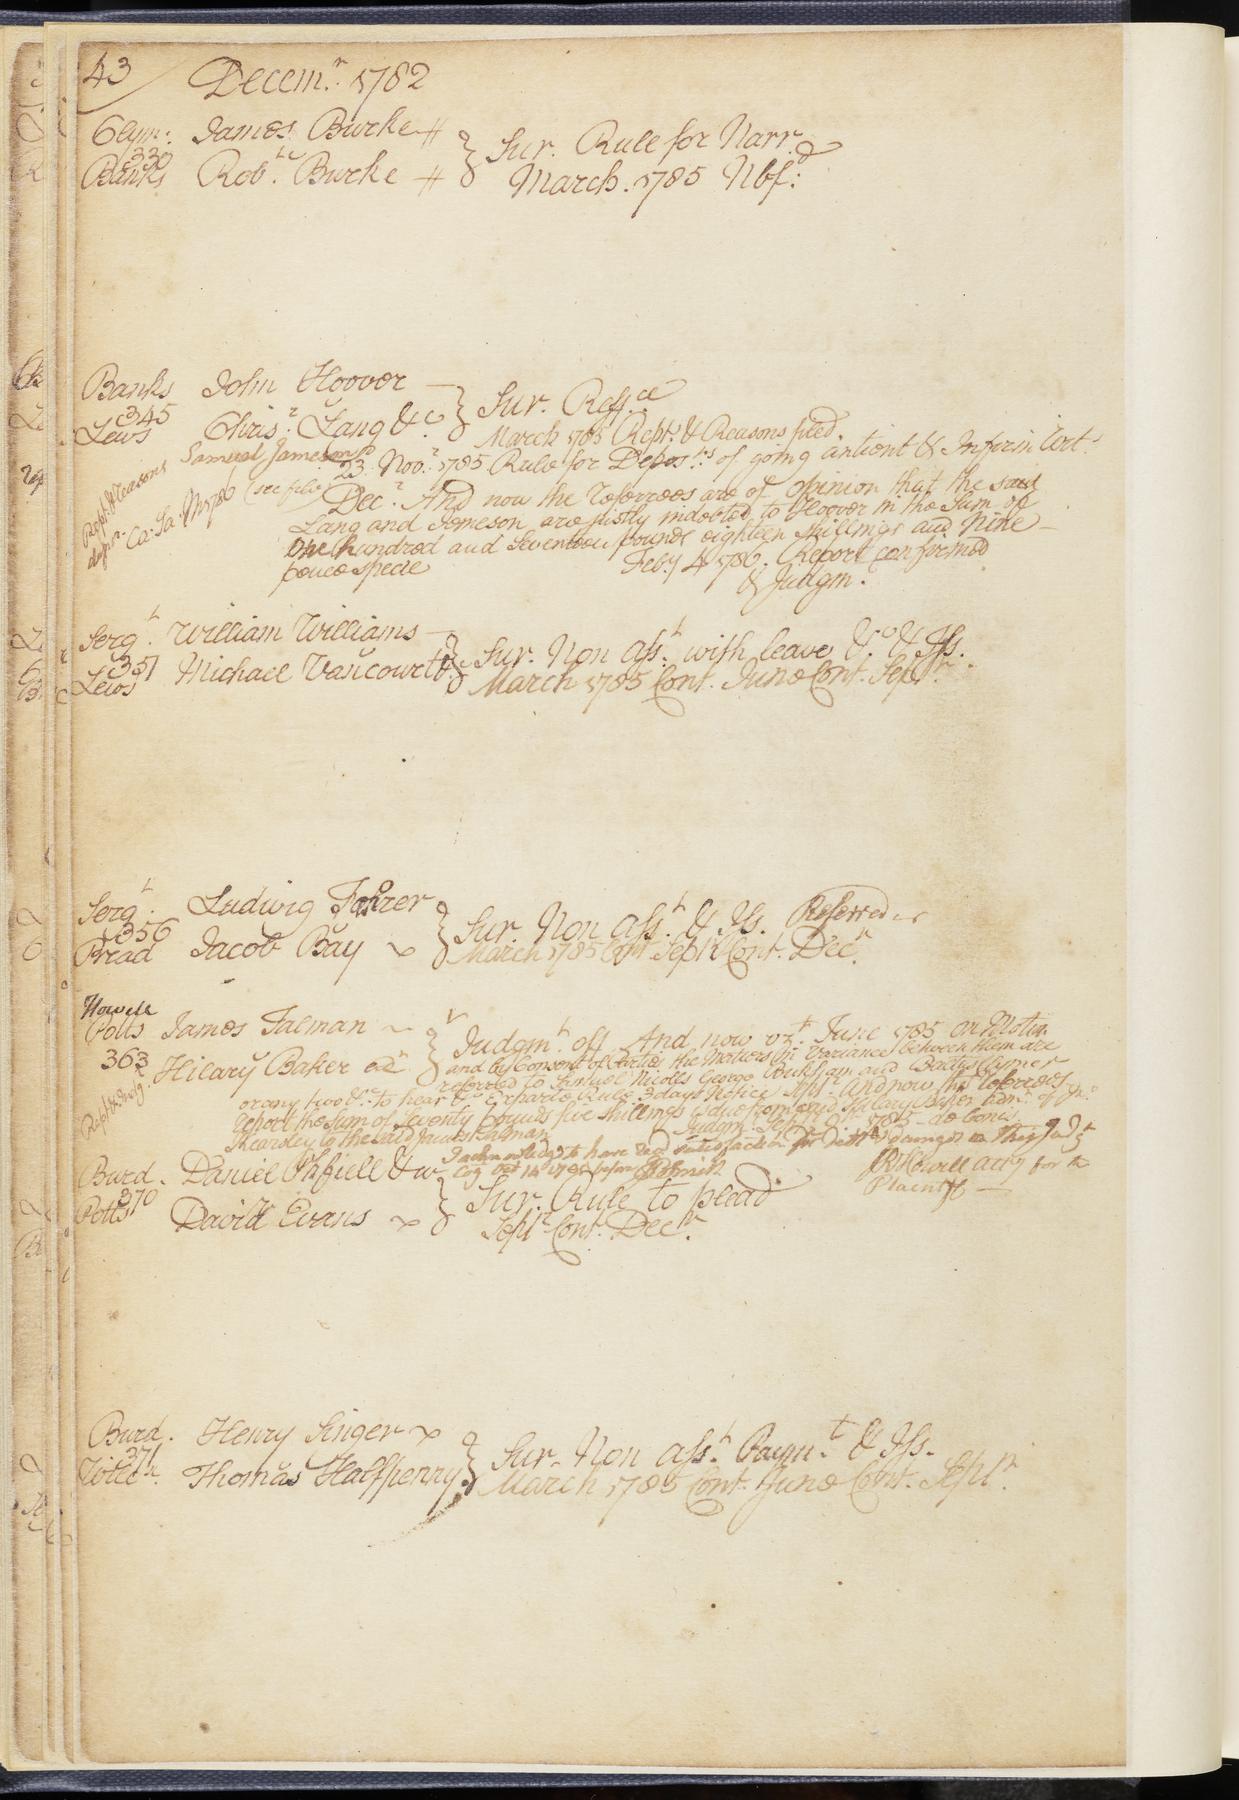 43 Decem.r 1782
Clym: James Burke
330
Banks Rob.t Burke
Sur. Rule for Narr.
March. 1785 Nbf:
Banks John Hoover
345
Lews Chris.r Lang &c
Samuel Jameson
Sur. Reff.ce
March 1785 Rept. & Reasons filed.
23 Nov.r 1785 Rule for Depos.ns of going antient & Infirm
Rept. & Reasons
Ca: Sa: (see file)
Dec.r And now the Referrees are of opinion that the said
Lang and Jameson are justly indebted to Hoover in the Sum of
One hundred and Seventeen pounds eighteen shillings and Nine
pence specie Feby 4 1786. Report confirmed
& Judgm.
Serg.t William Williams
351
Lews Michael Vancourt &c
Sur. Non Ass.t with leave &c. & Iss.
March 1785 Cont. June Cont. Sept.r
Serg.t Ludwig
356
Brad Jacob Bay
Sur. Non Ass.t & Iss. Referred
March 1785 Cont Sept.r Cont. Dec.r
Howell
Potts James Talman
363
Hilary Baker
Judgm.t off. And now June 1785 on Motion
and by Consent of Parties the Matters in Variance between them are
referred to Samuel Nicolls George and
or any two &c. to hear &c Exparte Rule 3 days Notice Sept.r And now the Referrees
report the Sum of Seventy pounds five shillings due from said Hilary Baker Adm.r of
to the said James Talman Judgm. Sept. 1785 de bonis
I acknowledge to have rec'd satisfaction for debt & damages in this
Oct 14 before
Howell atty for the
Plaintff
Burd. Daniel &
370
Potts David Evans
Sur. Rule to plead
Sept.r Cont. Dec.r
Burd. Henry Singer
371
Thomas Halfpenny
Sur. Non Ass.t Paym.t & Iss.
March 1785 Cont. June Cont. Sept.r